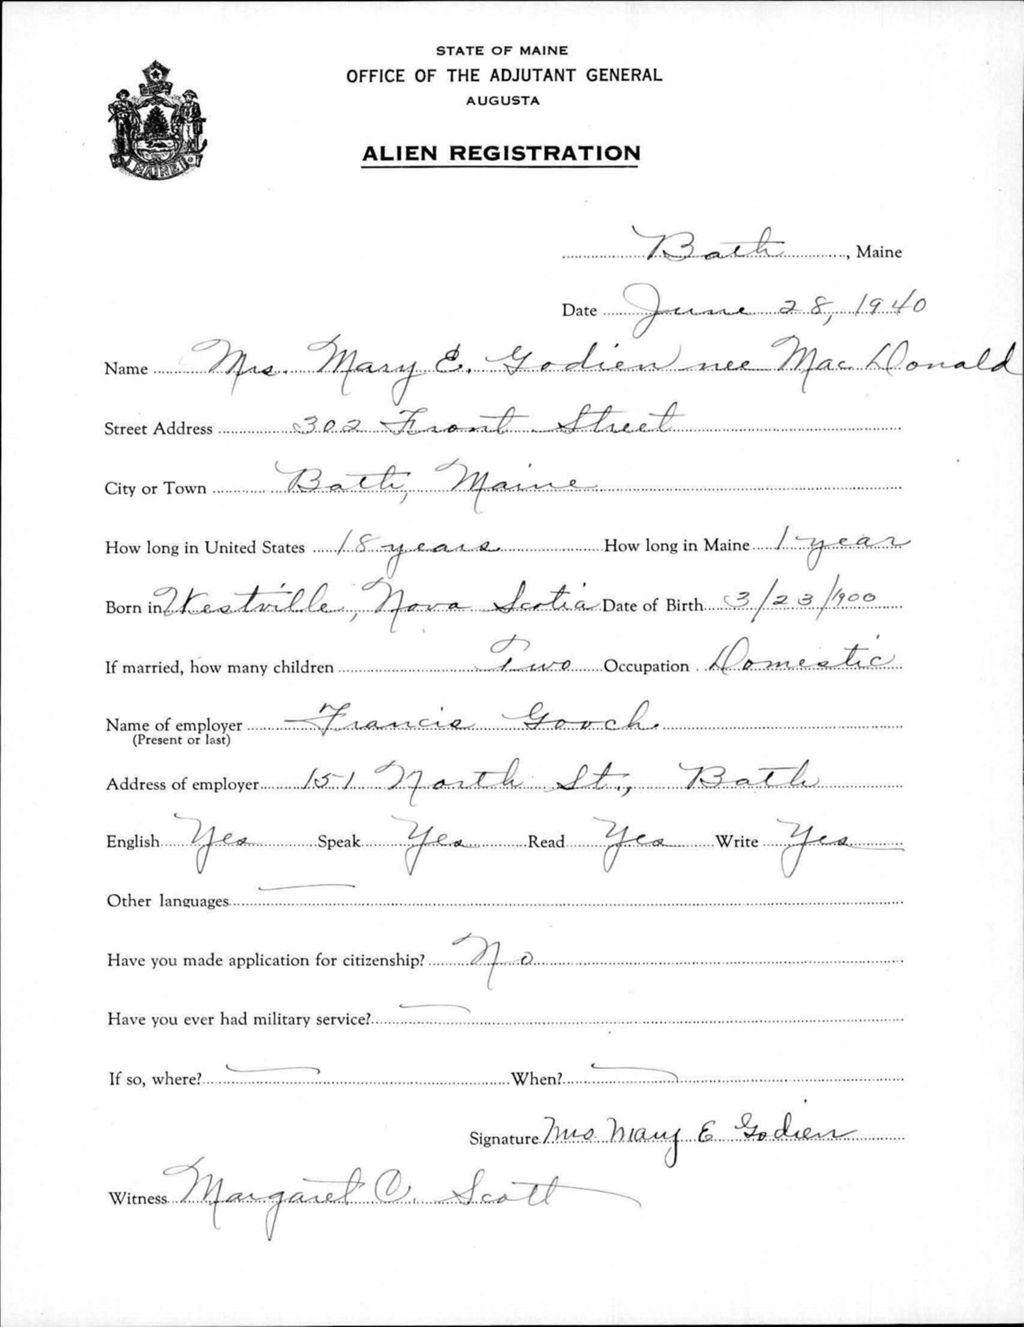 STATE OF MAINE
OFFICE OF THE ADJUTANT GENERAL
AUGUSTA
ALIEN REGISTRATION
MAINE
Bath, Maine
Date June 28, 1940
Name Mrs. Mary E. Godien nee MacDonald
Street Address 302 Front Street
City or Town Bath, Maine
How long in United States 18 years How long in Maine 1 year
Born in Westville, Nova Scotia Date of Birth 3/23/1900
If married, how many children Two Occupation Domestic
Name of employer Francis Gooch
(Present or last)
Address of employer 151 North St., Bath
English Yes Speak Yes Read Yes Write Yes
Other languages —
Have you made application for citizenship? No
Have you ever had military service? —
If so, where? — When? —
Signature Mrs Mary E Godien
Witness Margaret C. Scott